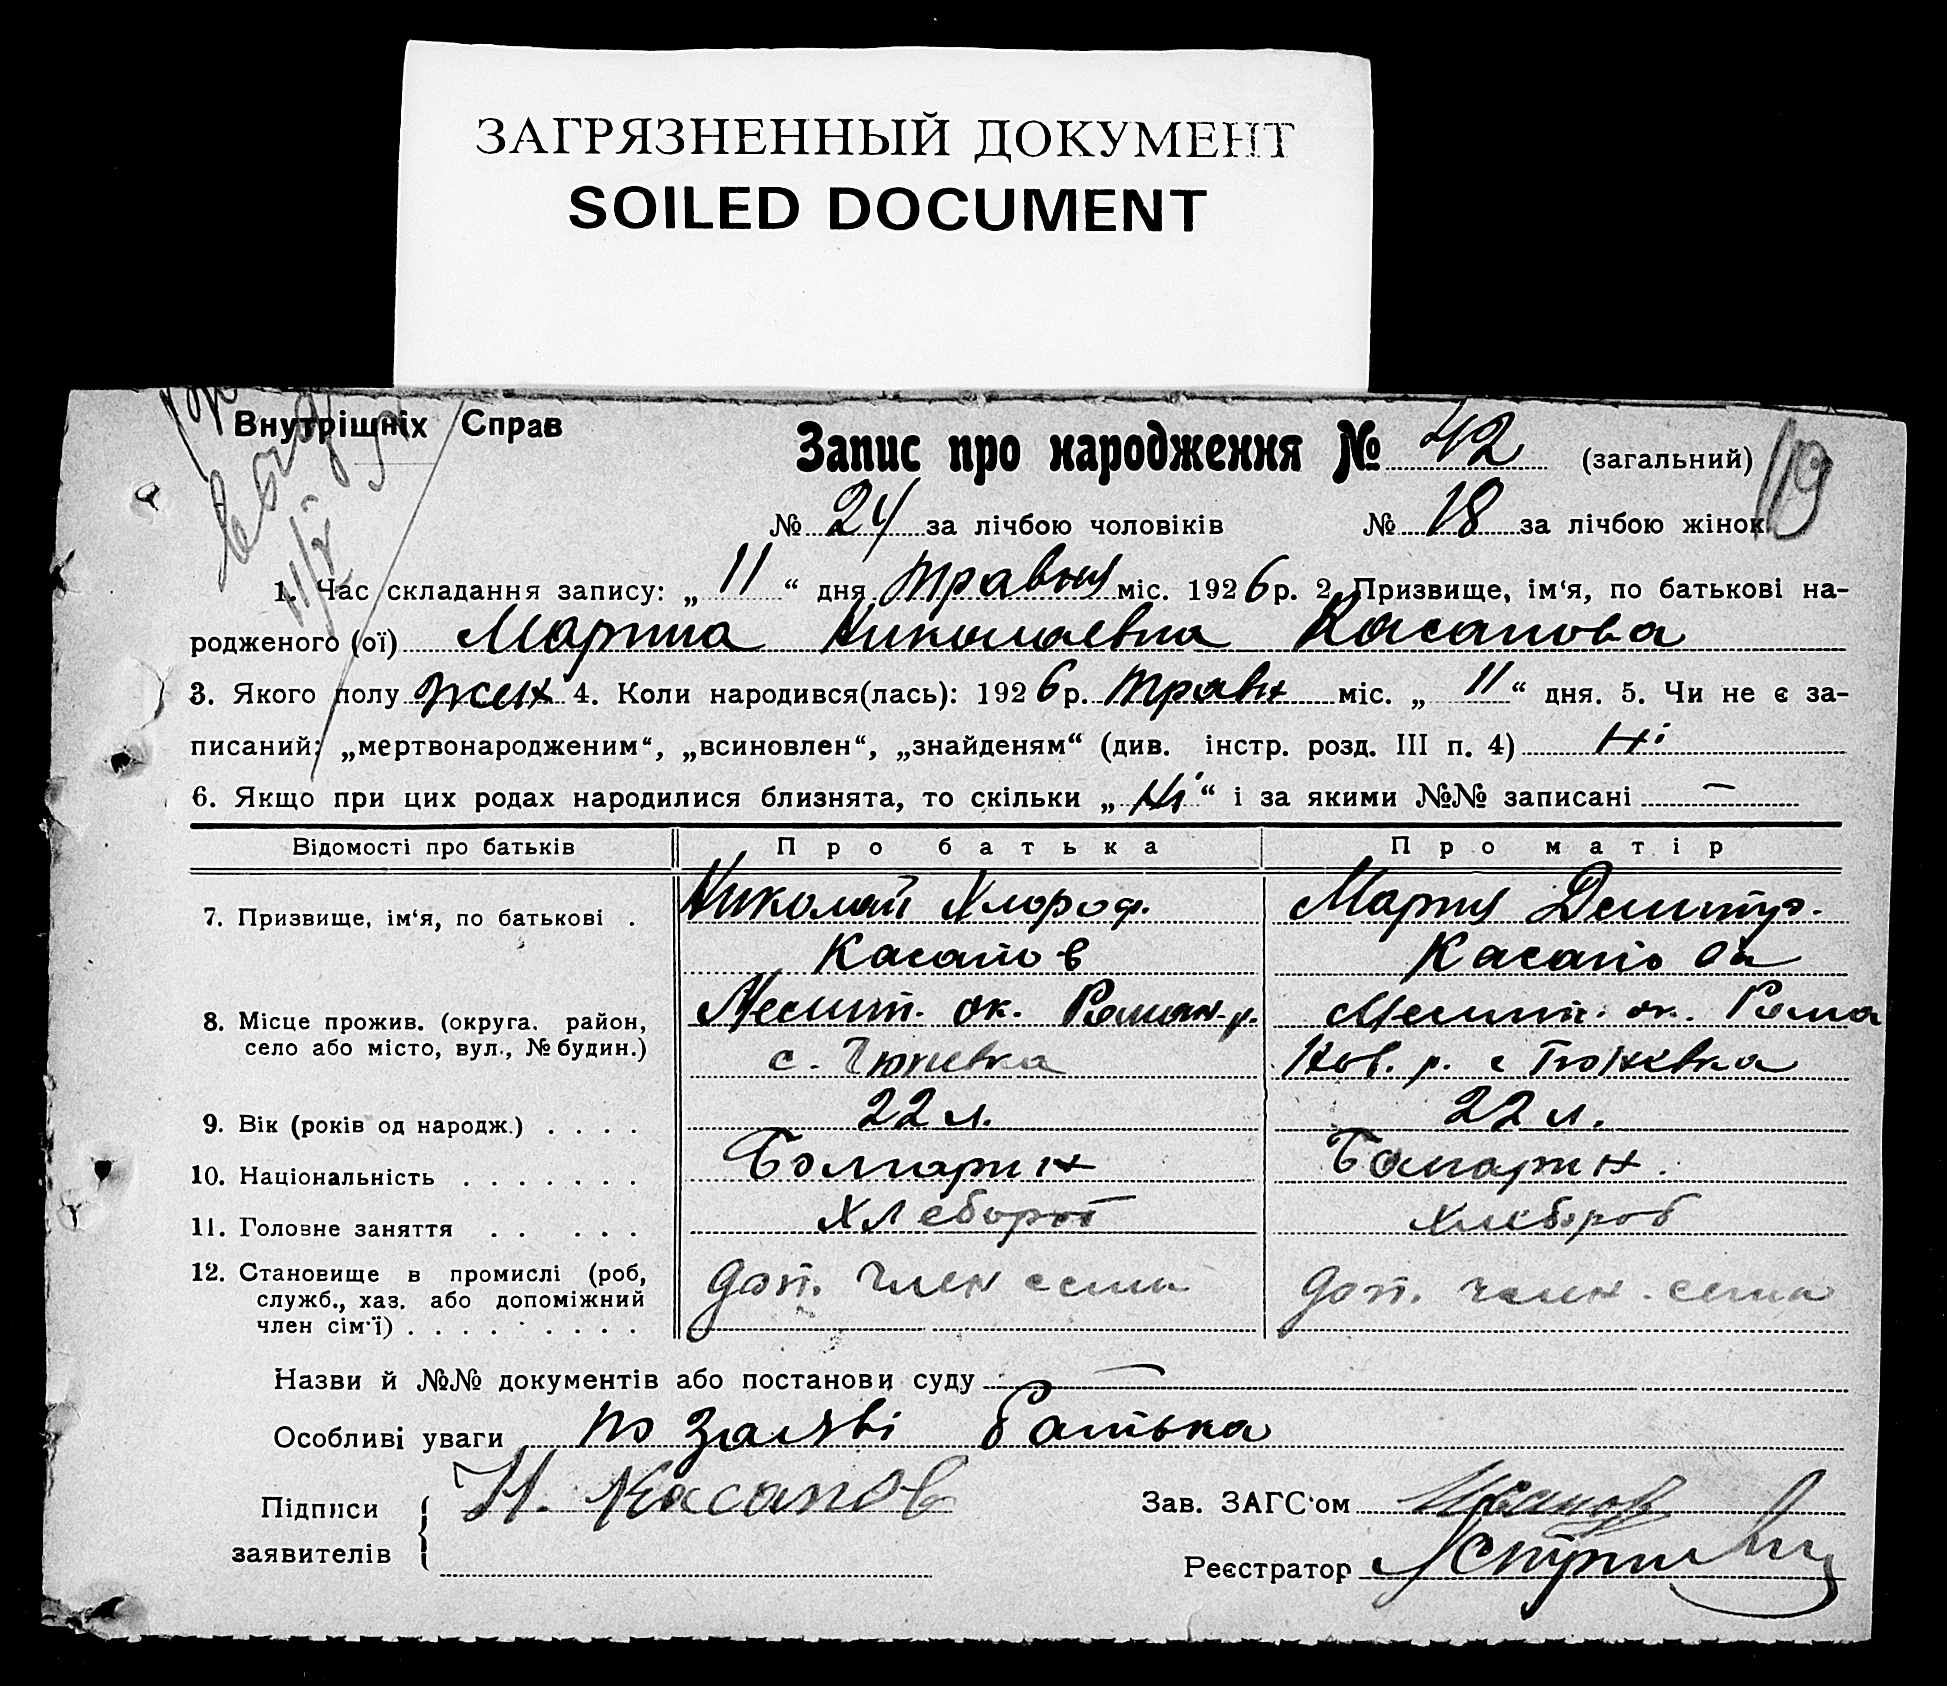 ЗАГРЯЗНЕННЫЙ ДОКУМЕНТ
SOILED DOCUMENT
Внутрішніх Справ
Запис про народження № 42 (загальний)
119
№ 24 за лічбою чоловіків № 18 за лічбою жінок
1. Час складання запису: „ 11 “ дня травня міс. 1926 р. 2. Призвище, ім‘я, по батькові на-
родженого (ої) Марина Николаевна Касапова
3. Якого полу жен 4. Коли народився(лась): 1926 р. травн міс. „ 11 “ дня. 5. Чи не є за-
писаний: „мертвонародженим“, „всиновлен“, „знайденям“ (див. інстр. розд. III п. 4) Ні
6. Якщо при цих родах народилися близнята, то скільки „ Ні “ і за якими №№ записані —
Відомості про батьків Про батька Про матір
7. Призвище, ім‘я, по батькові . Николай Мария Демитр.
Касапов Касапова
8. Місце прожив. (округа, район, Мелит. ок. Роман. р. Мелит. ок. Рома
село або місто, вул., № будин.) с. Гюневка Нов. р. с Гюневка
9. Вік (років од народж.) . . . . 22 л. 22 л.
10. Національність . . . . . . . Болгарин Болгарин.
11. Головне заняття . . . . . Хлебороб Хлебороб
12. Становище в промислі (роб, доп. член семи доп. член семи
служб., хаз. або допоміжний
член сім‘ї) . . . . . . . . .
Назви й №№ документів або постанови суду —
Особливі уваги по заяві батька
Підписи Н. Касапов Зав. ЗАГС‘ом
заявителів Реєстратор